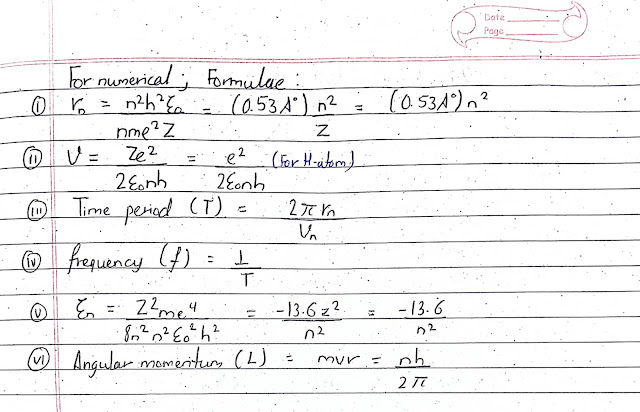 Date
Page
For numerical ; Formulae :
(i) rₙ = n²h²ε₀ / nme²Z = (0.53A°) n² / Z = (0.53A°) n²
(ii) V = Ze² / 2ε₀nh = e² / 2ε₀nh (For H-atom)
(iii) Time period (T) = 2πrₙ / Vₙ
(iv) frequency (f) = 1 / T
(v) Eₙ = Z²me⁴ / 8n²n²ε₀²h² = -13.6z² / n² = -13.6 / n²
(vi) Angular momentum (L) = mvr = nh / 2π